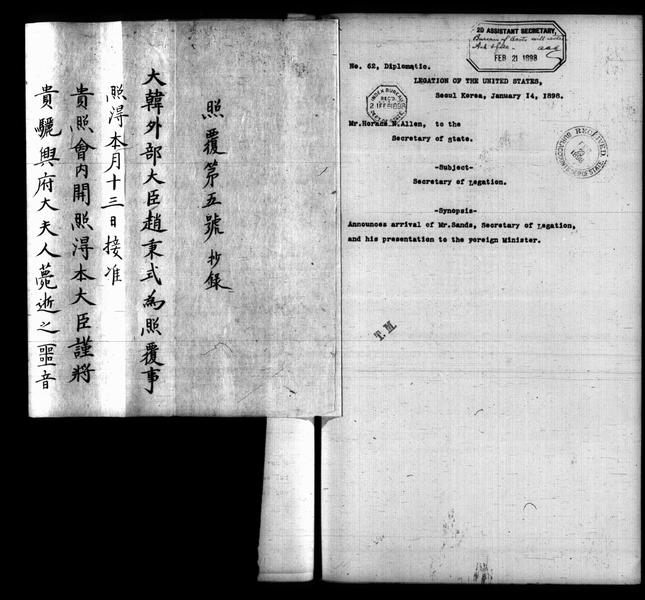 照覆第五號 抄錄
大韓外部大臣趙秉式為照覆事
照淂本月十三日接准
貴照會內開照淂本大臣謹將
貴驪興府大夫人薨逝之噩音
2D ASSISTANT SECRETARY,
FEB 21 1898
No. 62, Diplomatic.
LEGATION OF THE UNITED STATES,
Seoul Korea, January 14, 1898.
INDEX BUREAU
REC'D
Mr. Horace N. Allen, to the
Secretary of State.
RECEIVED
-Subject-
Secretary of Legation.
-Synopsis-
Announces arrival of Mr. Sands, Secretary of Legation,
and his presentation to the Foreign Minister.
T.M.